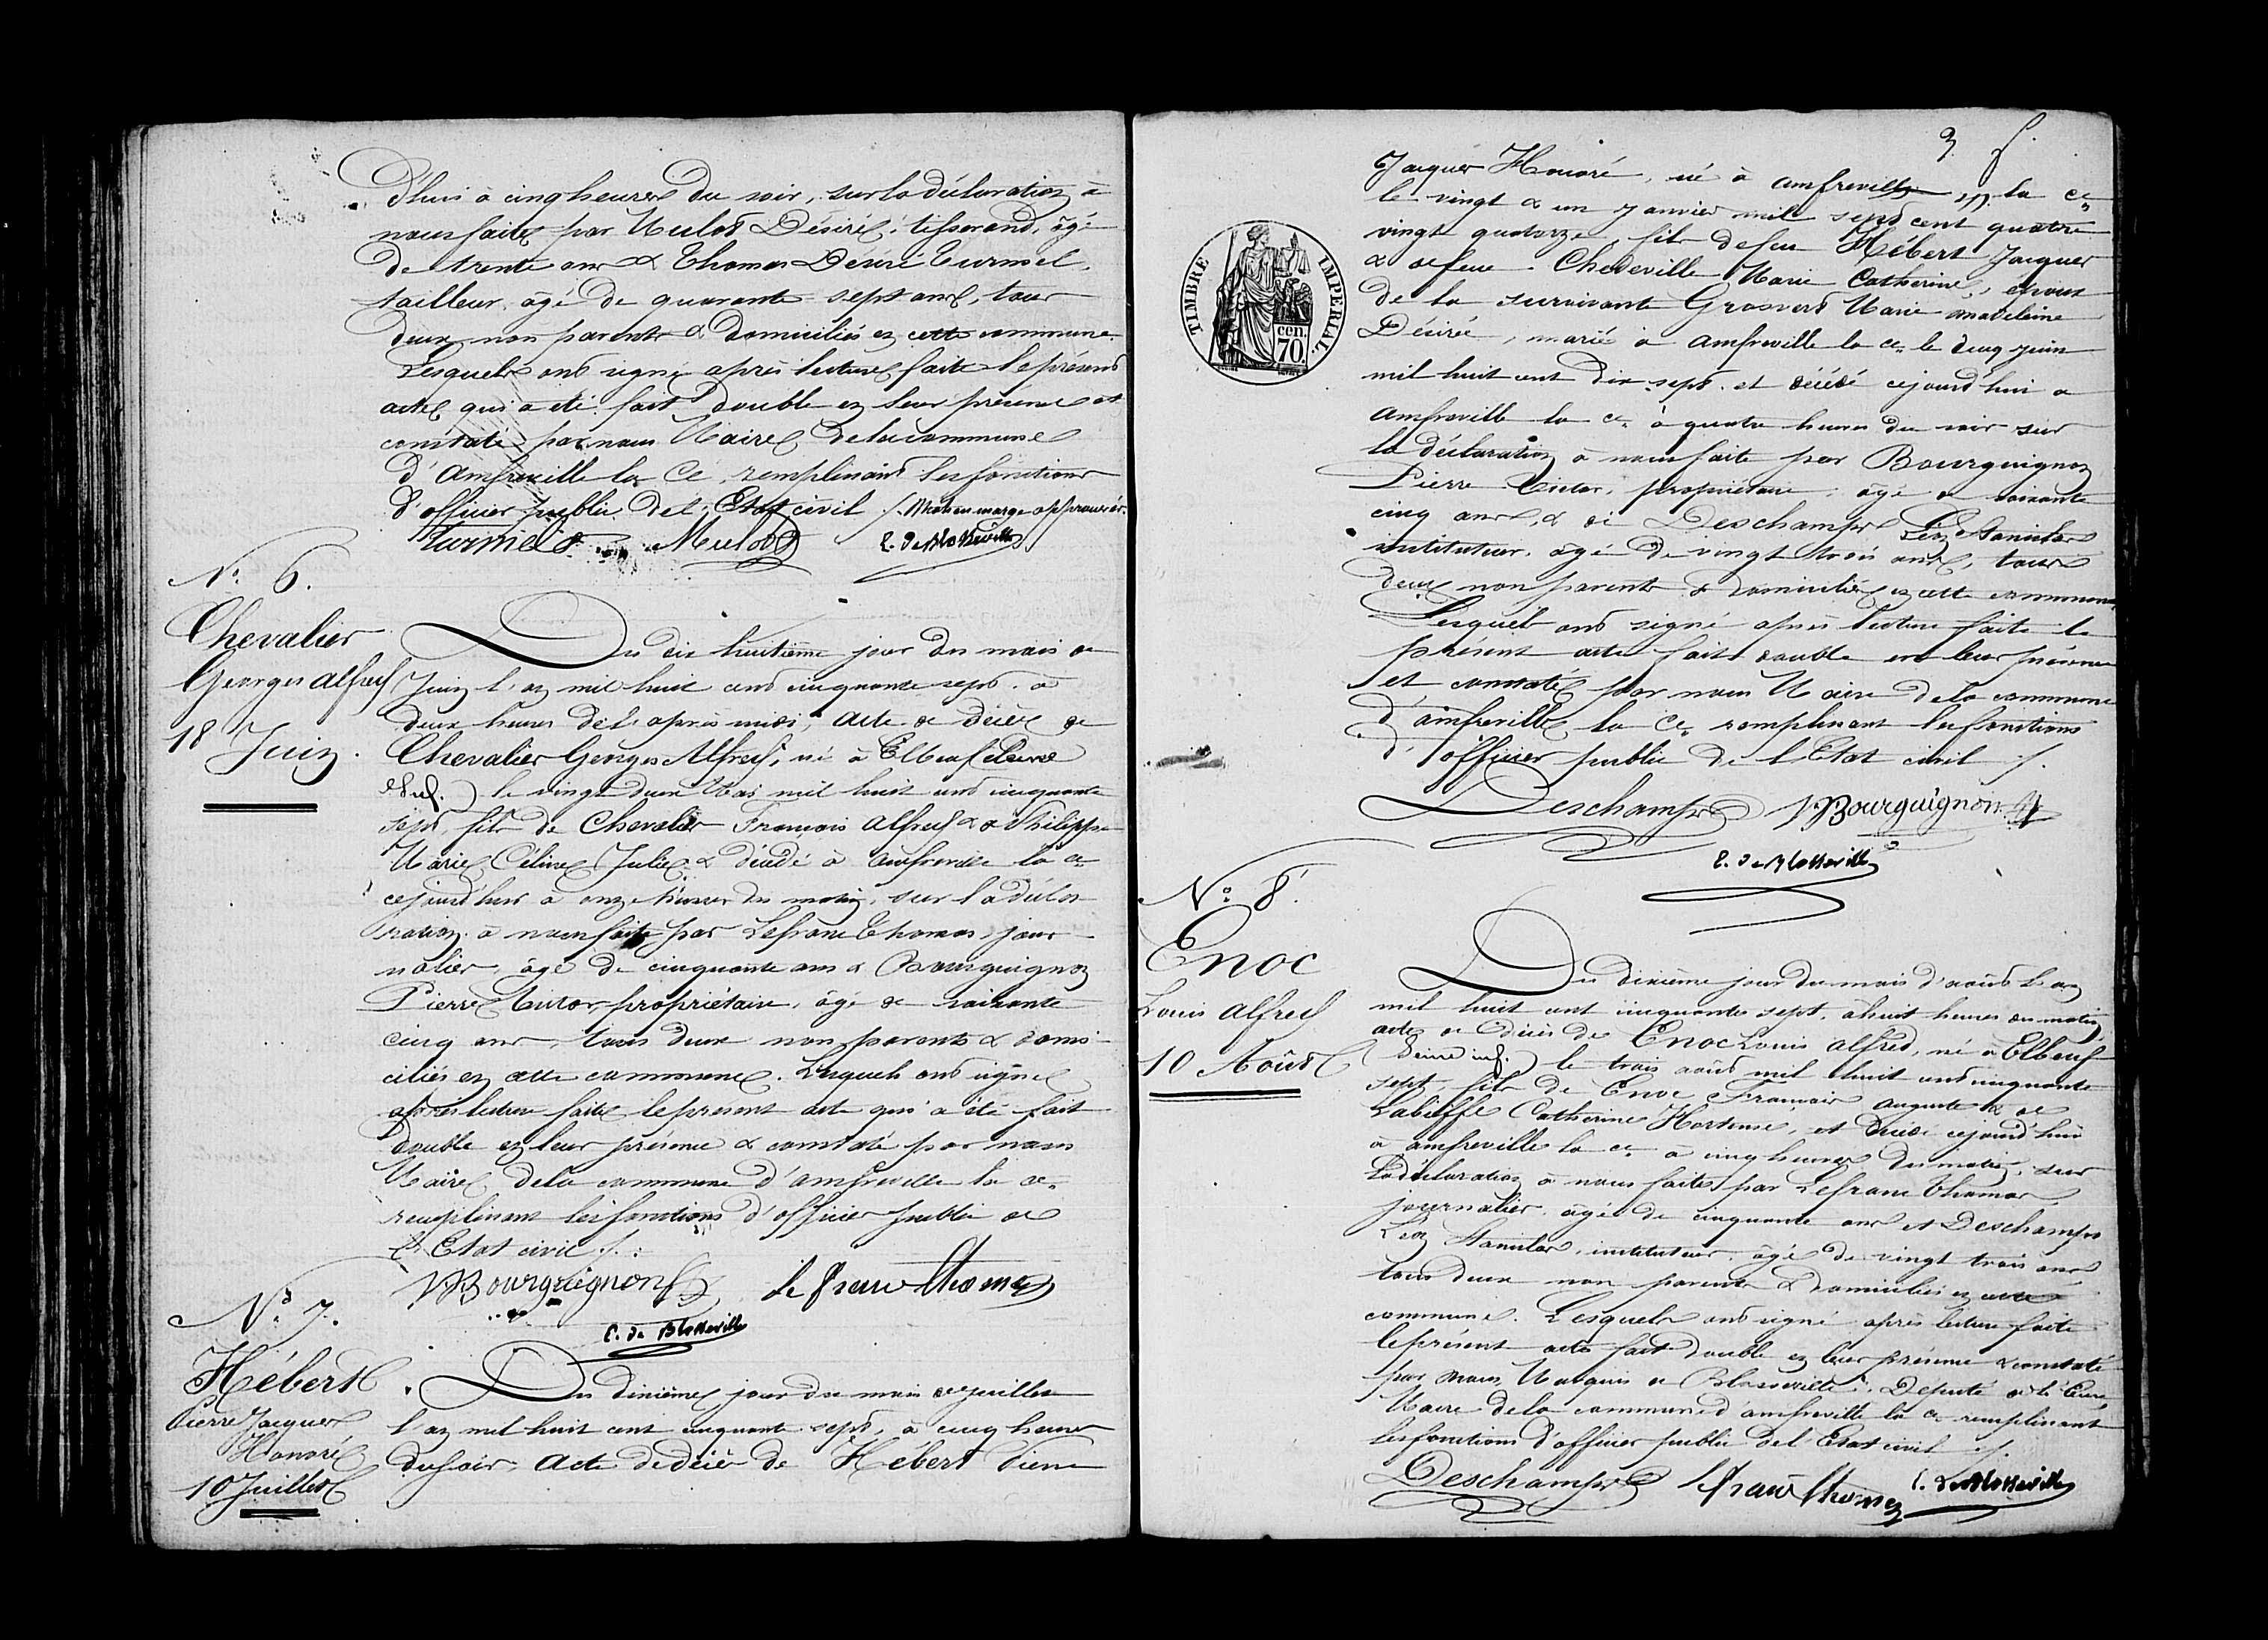 d'hui à cinq heures du soir, sur la déclaration à
nous faite par Mulot Désiré, tisserand, âgé
de trente ans & Thomas Désiré Turmel,
tailleur, âgé de quarante sept ans, tous
deux non parents & domiciliés en cette commune
Lesquels ont signé après lecture faite le présent
acte qui a été fait double en leur présence et
constaté par nous Maire de la commune
d'Amfreville la Ce, remplissant les fonctions
d'officier public de l'Etat civil ./. Mot en marge approuvés.
Turmel Mulot E. de Blosseville
N° 6.
Chevalier
Georges Alfred
18 Juin.
Du dix huitième jour du mois de
Juin l'an mil huit cent cinquante sept, à
deux heures de l'après midi, acte de décès de
Chevalier Georges Alfred, né à Elbeuf (Seine
Inf.) le vingt deux Mai mil huit cent cinquante
sept, fils de Chevalier François Alfred & de Philippe
Marie Céline Julie & décédé à Amfreville la Ce
cejourd'hui à onze heures du matin, sur la décla
ration à nous faite par Lefranc Thomas, jour
nalier, âgé de cinquante ans & Bourguignon
Pierre Victor, propriétaire, âgé de soixante
cinq ans, tous deux non parents & domi
ciliés en cette commune. Lesquels ont signé
après lecture faite le présent acte qui a été fait
double en leur présence & constaté par nous
Maire de la commune d'amfreville la Ce
remplissant les fonctions d'officier public de
l'Etat civil ./.
VBourguignon Lefranc Thomas
E. de Blosseville
N° 7.
Hébert
Pierre Jacques
Honoré
10 Juillet
Du dixième jour du mois de juillet
l'an mil huit cent cinquante sept, à cinq heures
du soir, Acte de décès de Hébert Pierre
3
Jacques Honoré, né à amfreville la Ce
le vingt & un Janvier mil sept cent quatre
vingt quatorze, fils de feu Hébert Jacques
& de feue Chedeville Marie Catherine, époux
de la survivante Grosvert Marie Madeleine
Désirée, marié à amfreville la Ce le cinq juin
mil huit cent dix sept, et décédé cejourd'hui à
Amfreville la Ce à quatre heures du soir sur
la déclaration à nous faite par Bourguignon
Pierre Victor, propriétaire, âgé de soixante
cinq ans, & de Deschamps Léon Stanislas
instituteur, âgé de vingt trois ans, tous
deux non parents & domiciliés en cette commune.
Lesquels ont signé après lecture faite le
présent acte fait double en leur présence
et constaté par nous Maire de la commune
d'amfreville la Ce remplissant les fonctions
d'officier public de l'Etat civil ./.
Deschamps VBourguignon
E. de Blosseville
TIMBRE IMPÉRIAL.
cen.
70.
N° 8.
Enoc
Louis Alfred
10 Août
Du dixième jour du mois d'août L'an
mil huit cent cinquante sept, à huit heures du matin,
acte de décès de Enoc Louis Alfred, né à Elbeuf
(Seine inf.) le trois août mil huit cent cinquante
sept, fils de Enoc François Auguste & de
Labieffe Catherine Hortense, et décédé cejourd'hui
à amfreville la Ce à cinq heures du matin, sur
la déclaration à nous faite par Lefranc Thomas
journalier, âgé de cinquante ans et Deschamps
Léon Stanislas, instituteur, âgé de vingt trois ans
tous deux non parents & domiciliés en cette
commune. Lesquels ont signé après lecture faite
le présent acte fait double en leur présence & constaté
par nous, Marquis de Blosseville, Député de l'Eure,
Maire de la commune d'amfreville la Ce remplissant
les fonctions d'officier public de l'Etat civil ./.
Deschamps Lefranc Thomas E. de Blosseville